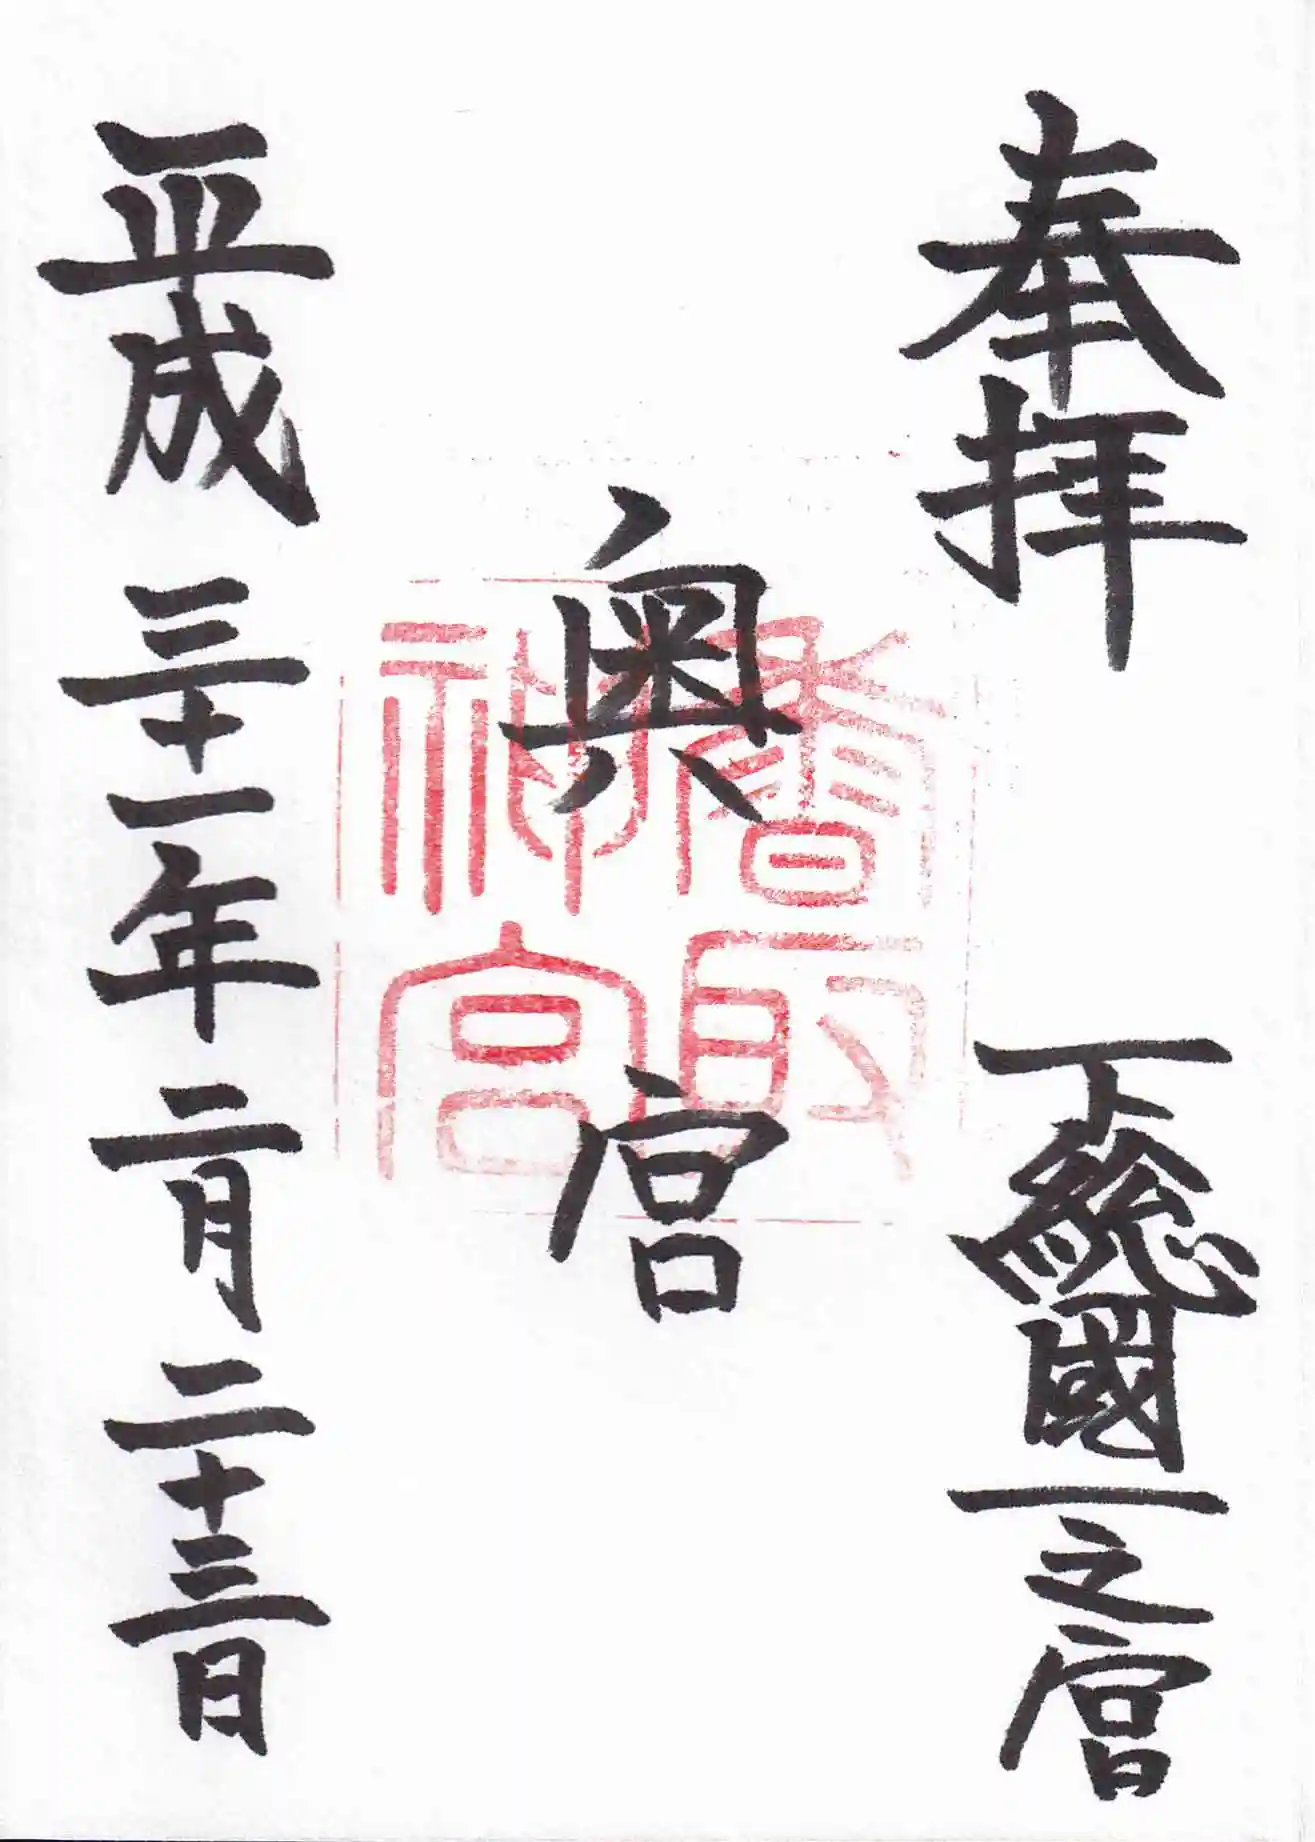 奉拝
下總國一之宮
奥宮
香取
神宮
平成三十一年二月二十三日